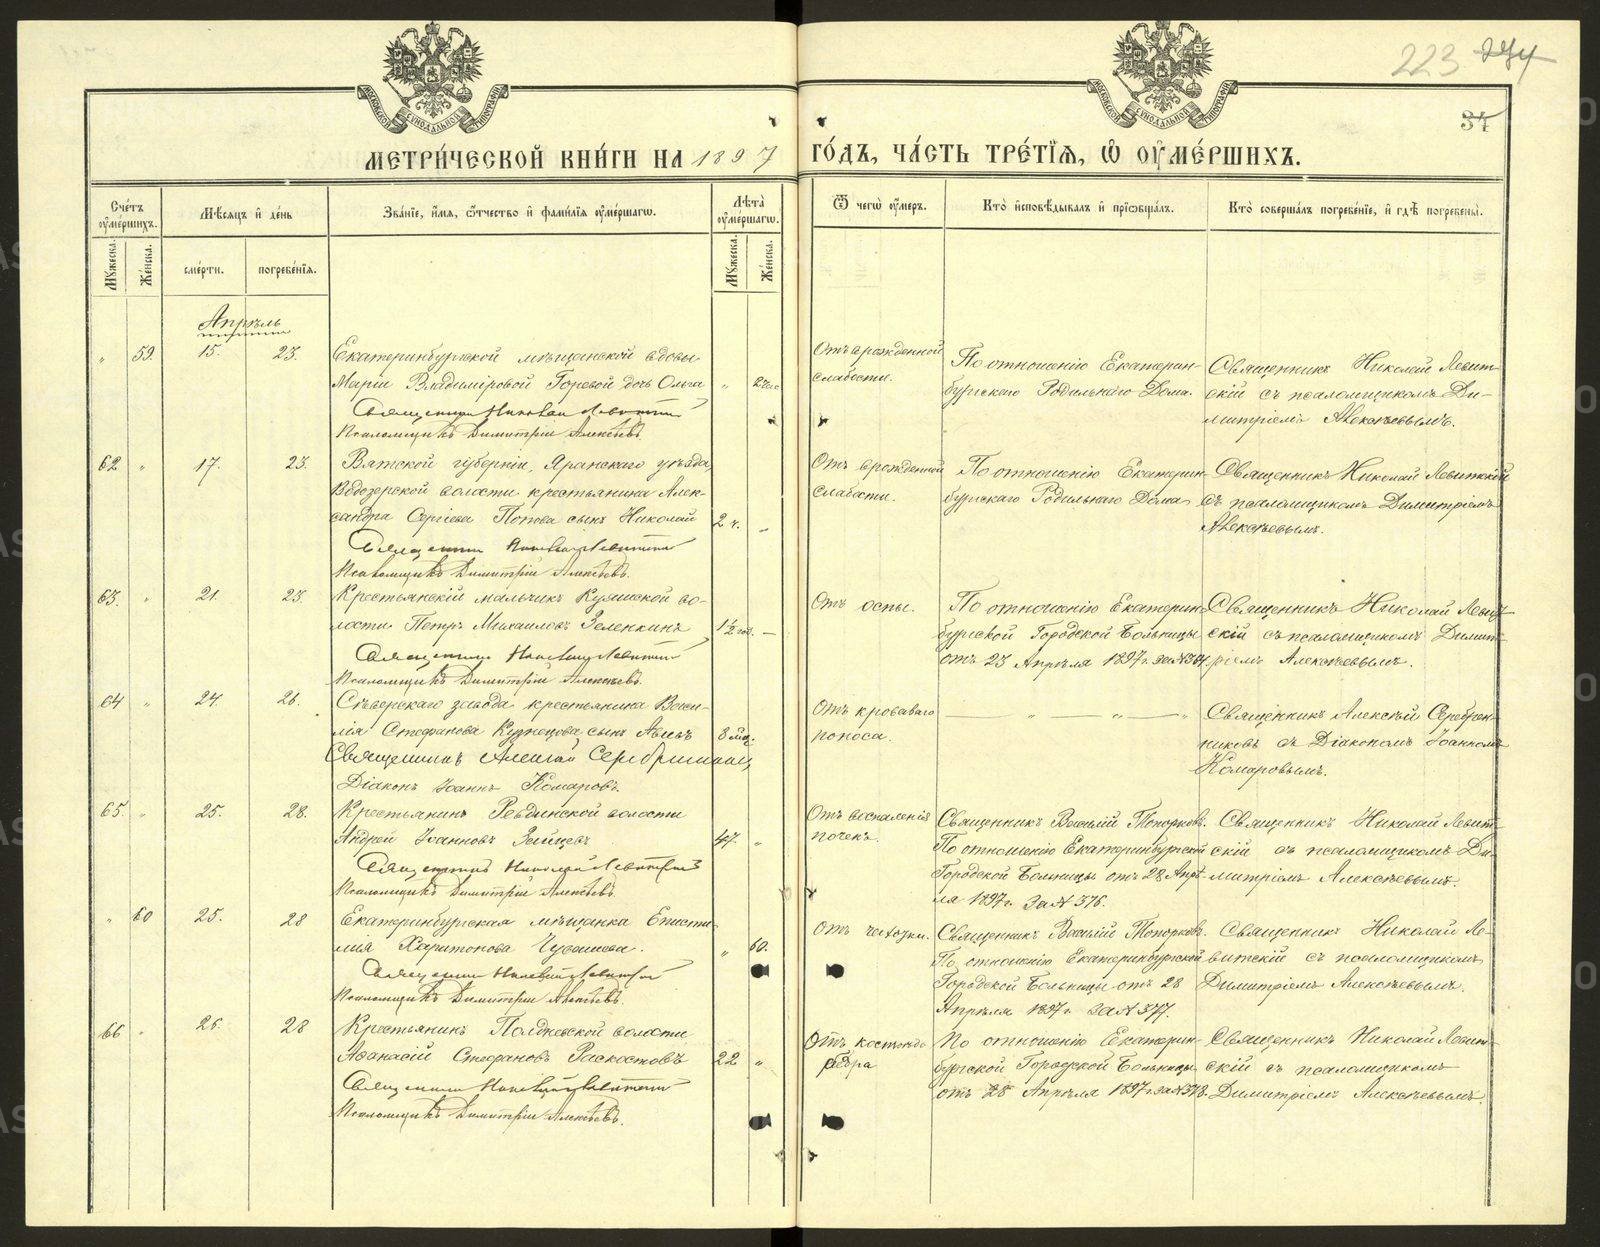 223 274
34
МОСКОВСКОЙ СѴНОДАЛЬНОЙ ТИПОГРАФІИ
МОСКОВСКОЙ СѴНОДАЛЬНОЙ ТИПОГРАФІИ
МЕТРИ́ЧЕСКОЙ КНИ́ГИ НА 1897 ГО́ДЪ, ЧА́СТЬ ТРЕ́ТІѦ, Ѡ҆ ОУ҆МЕ́РШИХЪ.
Сче́тъ оу҆ме́ршихъ.
Мꙋжеска.
Же́нска.
Мѣ́сѧцъ и҆ де́нь
сме́рти.
погребе́нїѧ.
Зва́нїе, и҆́мѧ, ѻ҆́тчество и҆ фами́лїѧ оу҆ме́ршагѡ.
Лѣ̑та оу҆ме́ршагѡ.
Мꙋжеска.
Же́нска.
Ѿ чегѡ̀ оу҆́меръ.
Кто̀ и҆сповѣ́дывалъ и҆ прїѡбща́лъ.
Кто̀ соверша́лъ погребе́нїе, и҆ гдѣ̀ погребены̀.
Апрѣль
" 59. 15. 23.
Екатеринбургской мѣщанской вдовы
Маріи Владиміровой Горевой дочь Ольга " 2 час
Священникъ Николай Левитскій
Псаломщикъ Димитрій Алексѣевъ.
Отъ врожденной
слабости.
По отношенію Екатерин-
бургскаго Родильнаго Дома.
Священникъ Николай Левит-
скій съ псаломщикомъ Ди-
митріемъ Алексѣевымъ.
62 " 17. 23.
Вятской губерніи, Яранскаго уѣзда,
Водозерской волости крестьянина Алек-
сандра Сергіева Попова сынъ Николай 2 ч. "
Священникъ Николай Левитскій
Псаломщикъ Димитрій Алексѣевъ.
Отъ врожденной
слабости.
По отношенію Екатерин-
бургскаго Родильнаго Дома
Священникъ Николай Левитскій
съ псаломщикомъ Димитріемъ
Алексѣевымъ.
63. " 21. 23.
Крестьянскій мальчикъ Куяшской во-
лости Петръ Михаиловъ Зеленкинъ 1½ год. —
Священникъ Николай Левитскій
Псаломщикъ Димитрій Алексѣевъ.
Отъ оспы.
По отношенію Екатерин-
бургской Городской Больницы
отъ 23 Апрѣля 1897 г. за №
Священникъ Николай Левит-
скій съ псаломщикомъ Димит-
ріемъ Алексѣевымъ.
64 " 24. 26.
Сѣверскаго завода крестьянина Васи-
лія Стефанова Кузнецова сынъ 8 мѣс.
Священникъ Алексій Серебрениковъ
Діаконъ Іоаннъ Комаровъ.
Отъ кроваваго
поноса.
— " — " — "
Священникъ Алексѣй Серебрен-
никовъ съ Діакономъ Іоанномъ
Комаровымъ.
65. " 25. 28.
Крестьянинъ Ревдинской волости
Андрей Іоанновъ Зайцевъ 47. "
Священникъ Николай Левитскій
Псаломщикъ Димитрій Алексѣевъ.
Отъ воспаленія
почекъ.
Священникъ Василій Топорковъ.
По отношенію Екатеринбургской
Городской Больницы отъ 28 Апрѣ-
ля 1897 г. за № 376.
Священникъ Николай Левит-
скій съ псаломщикомъ Ди-
митріемъ Алексѣевымъ.
" 60 25. 28
Екатеринбургская мѣщанка Еписти-
мія Харитонова Чувашева. " 60.
Священникъ Николай Левитскій
Псаломщикъ Димитрій Алексѣевъ.
Отъ чахотки.
Священникъ Василій Топорковъ.
По отношенію Екатеринбургской
Городской Больницы отъ 28
Апрѣля 1897 г. за № 377.
Священникъ Николай Ле-
витскій съ псаломщикомъ
Димитріемъ Алексѣевымъ.
66 " 26. 28
Крестьянинъ Полдневской волости
Афанасій Стефановъ Раскостовъ 22 "
Священникъ Николай Левитскій
Псаломщикъ Димитрій Алексѣевъ.
Отъ костоѣда
ребра
По отношенію Екатерин-
бургской Городской Больницы
отъ 28 Апрѣля 1897 г. за № 378.
Священникъ Николай Левит-
скій съ псаломщикомъ
Димитріемъ Алексѣевымъ.